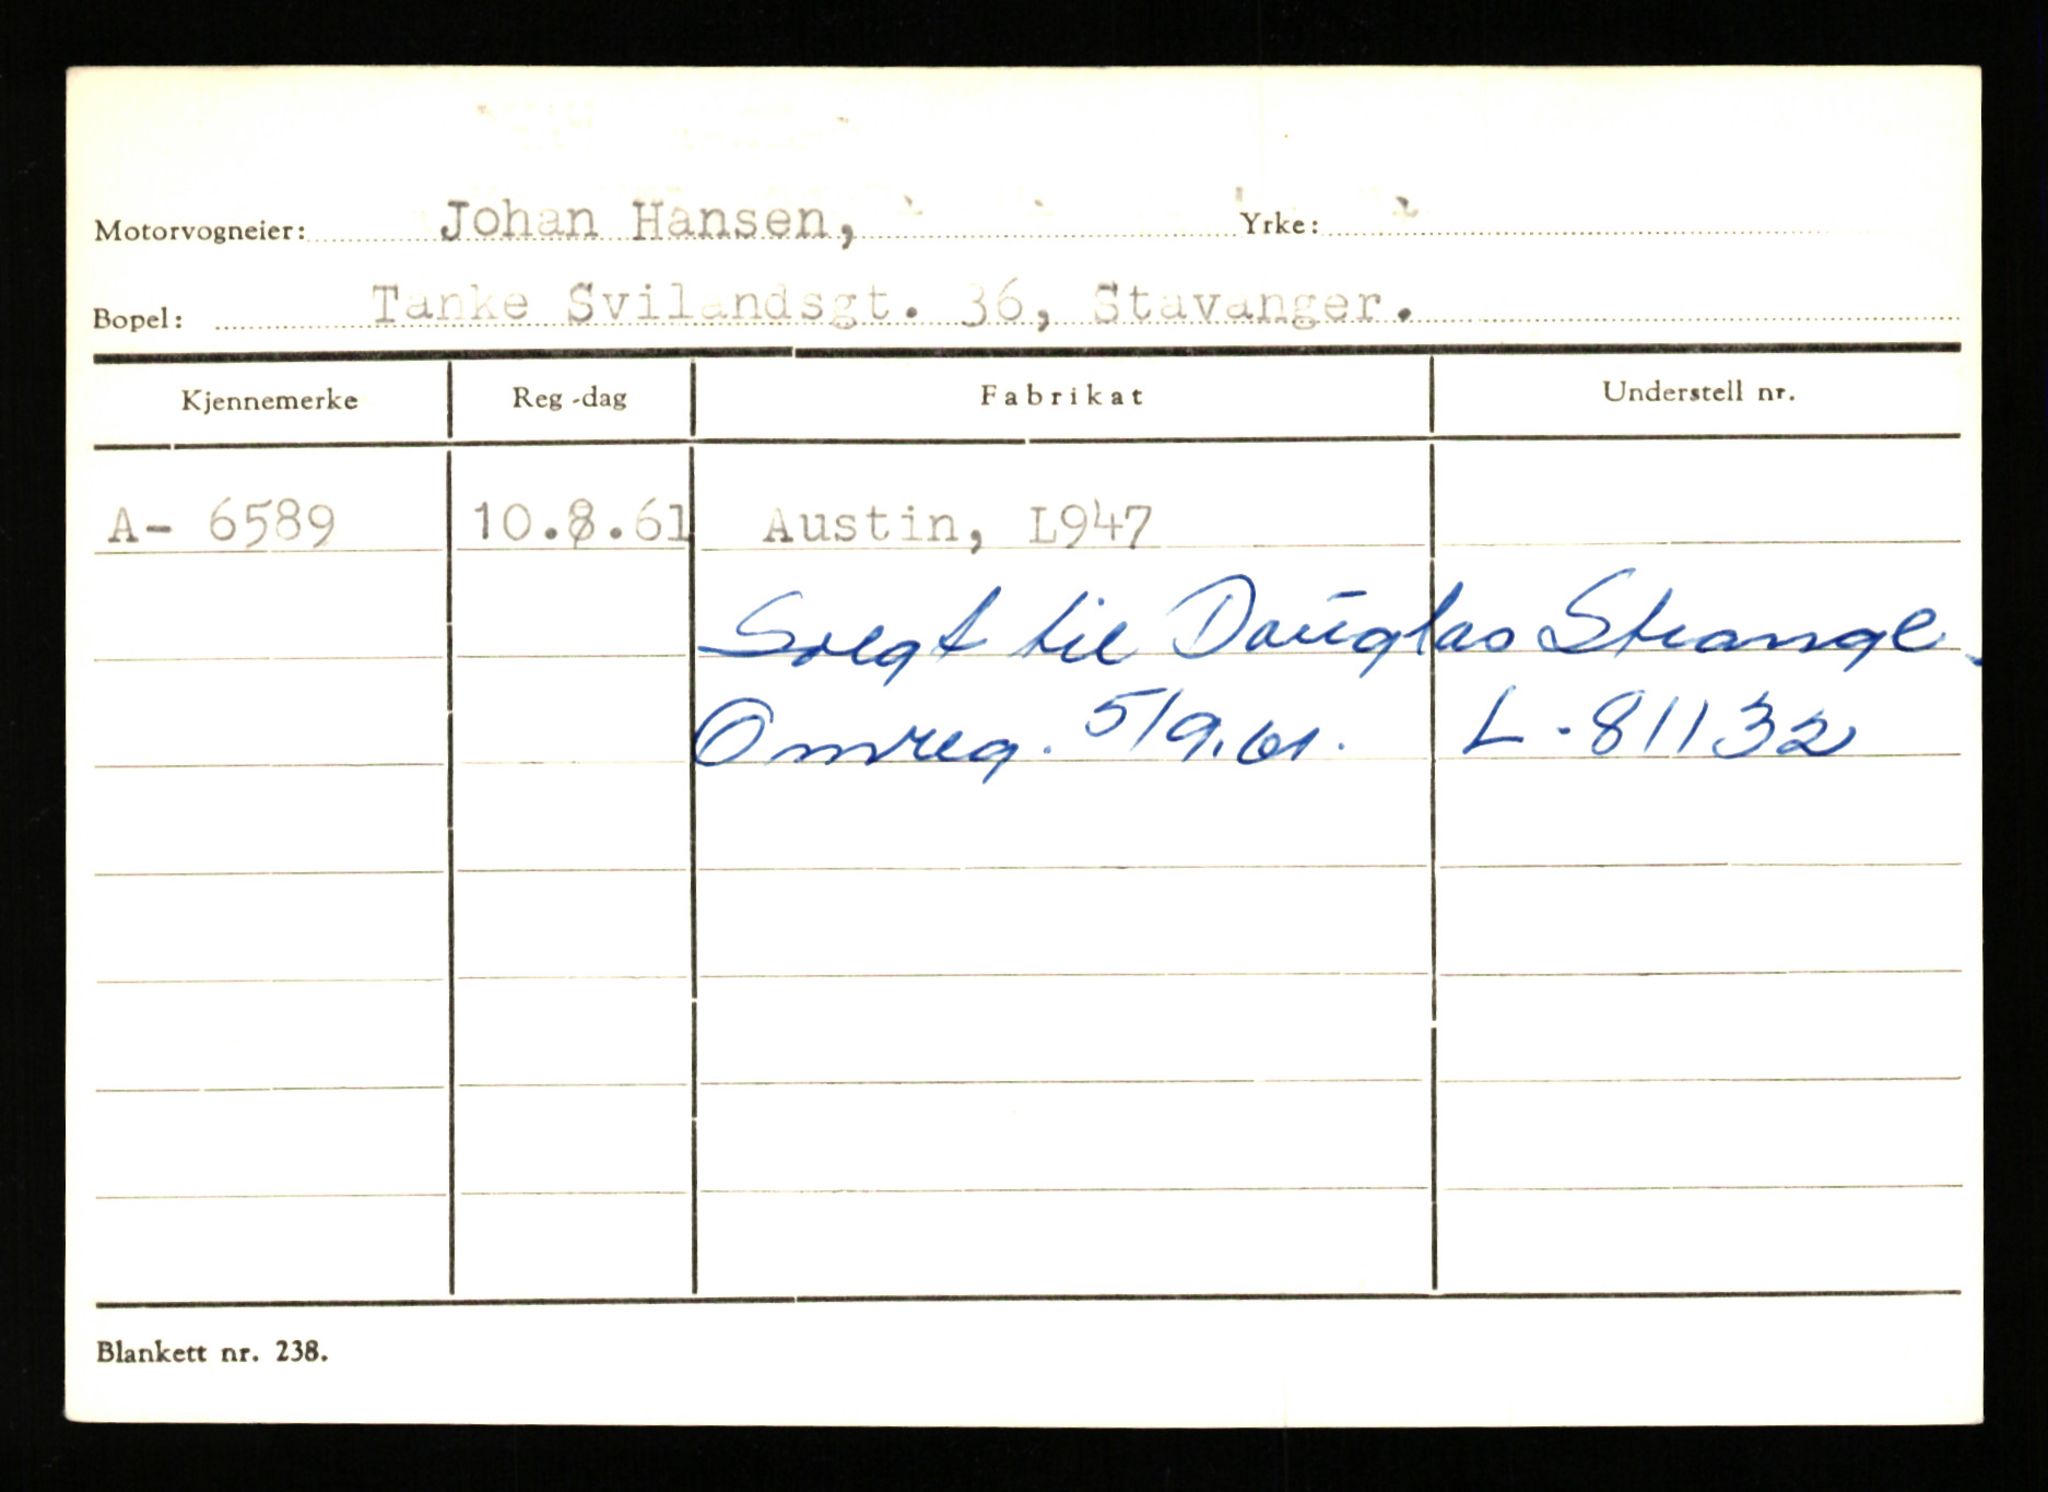 Motorvogneier: Johan Hansen, Yrke:
Bopel: Tanke Svilandsgt. 36, Stavanger.
Kjennemerke Reg-dag Fabrikat Understell nr.
A- 6589 10.8.61 Austin, L947
Solgt til Douglas Strange.
Omreg. 5/9.61. L-81132
Blankett nr. 238.